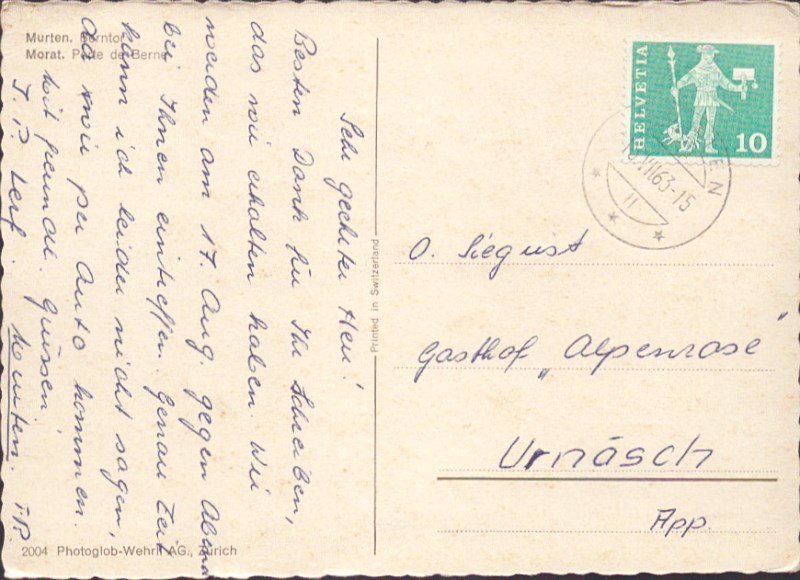 Murten. Berntor
Morat. Porte de Berne
Sehr geehrter Herr!
Besten Dank für Ihr Schreiben,
das wir erhalten haben. Wir
werden am 17. Aug. gegen Abend
bei Ihnen eintreffen. Genau Zeit
kann ich leider nicht sagen,
da wir per Auto kommen.
Mit freundl. Grüssen
Murten. FR.
2004 Photoglob-Wehrli AG., Zürich
Printed in Switzerland
HELVETIA
10
VII63-15
11
EN
O. Siegrist
Gasthof „Alpenrose"
Urnäsch
App.